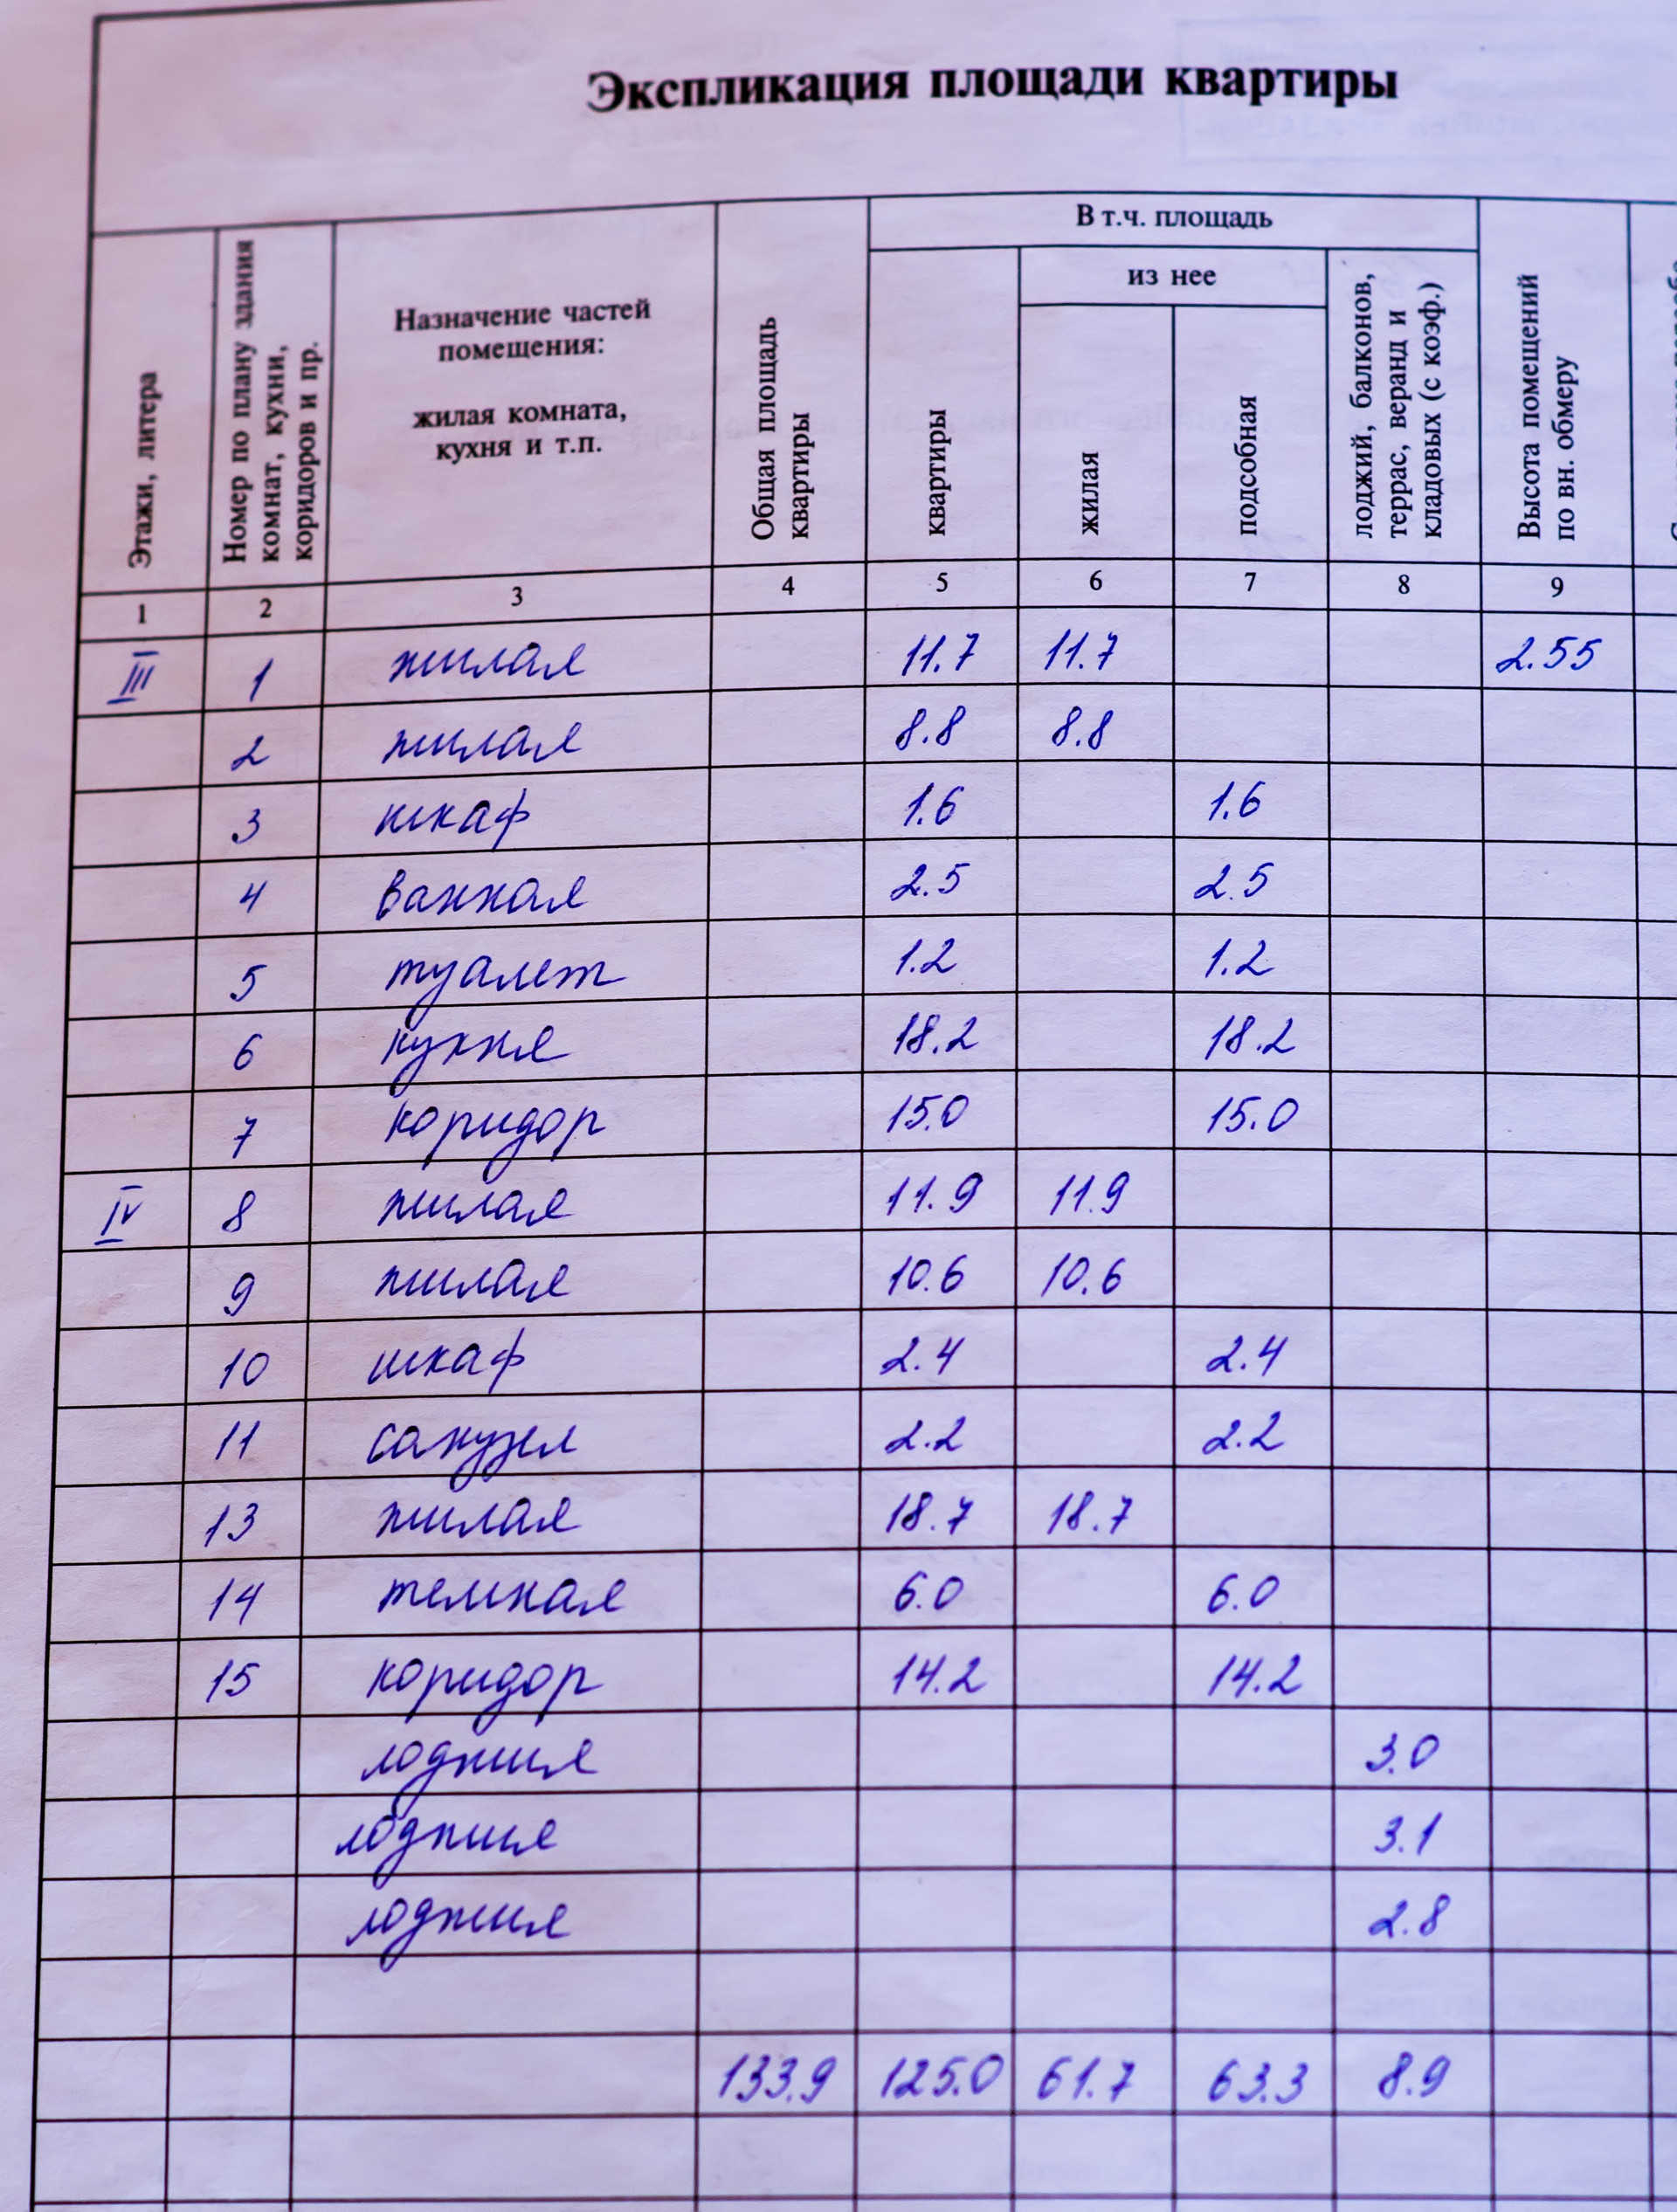 Экспликация площади квартиры
Этажи, литера
Номер по плану здания
комнат, кухни,
коридоров и пр.
Назначение частей
помещения:
жилая комната,
кухня и т.п.
Общая площадь
квартиры
В т.ч. площадь
квартиры
из нее
жилая
подсобная
лоджий, балконов,
террас, веранд и
кладовых (с коэф.)
Высота помещений
по вн. обмеру
1 2 3 4 5 6 7 8 9
III 1 жилая 11.7 11.7 2.55
2 жилая 8.8 8.8
3 шкаф 1.6 1.6
4 ванная 2.5 2.5
5 туалет 1.2 1.2
6 кухня 18.2 18.2
7 коридор 15.0 15.0
IV 8 жилая 11.9 11.9
9 жилая 10.6 10.6
10 шкаф 2.4 2.4
11 санузел 2.2 2.2
13 жилая 18.7 18.7
14 темная 6.0 6.0
15 коридор 14.2 14.2
лоджия 3.0
лоджия 3.1
лоджия 2.8
133.9 125.0 61.7 63.3 8.9